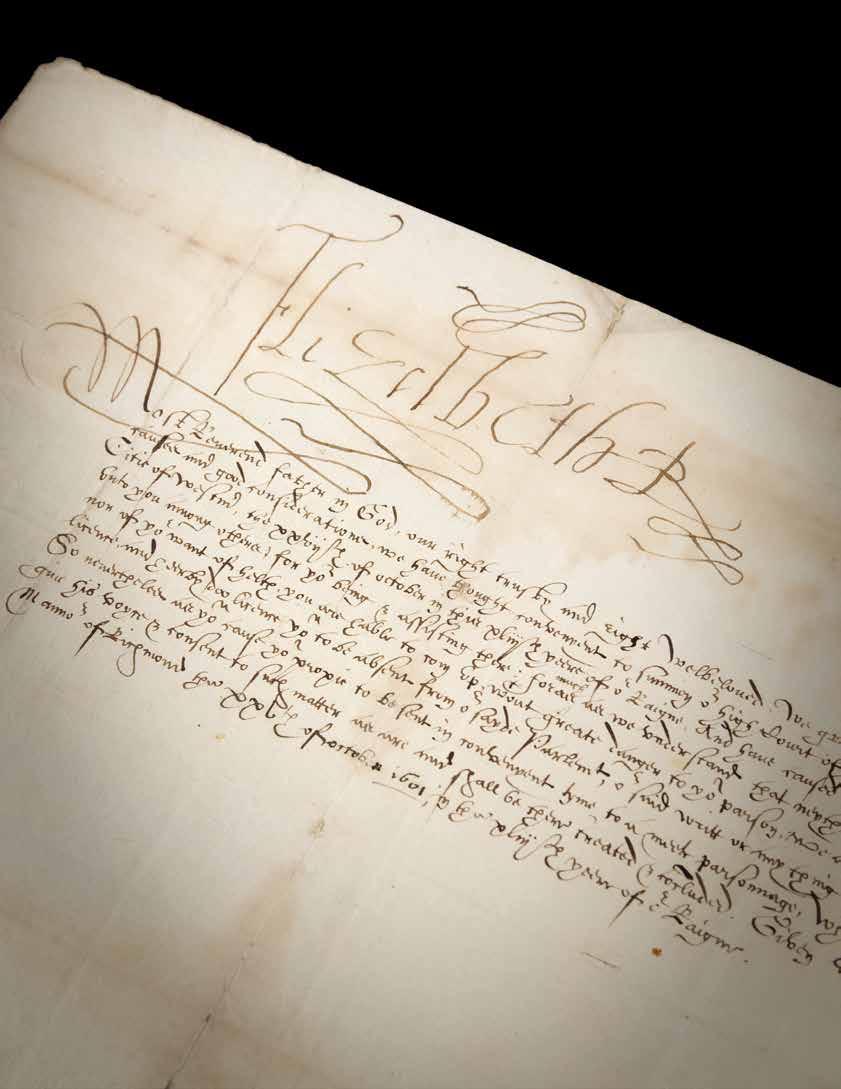 Elizabeth R
Most Reverend father in God, our right trusty and right welbeloued, We gre
causes and good consideracions, we have thought convenient to summon or high Court of
Citie of Westmr, the th of october in this xliij th yeare of or Raigne. And have caused
vnto you among others, for yor being & assisting there. Forasmuch as we vnderstand that neyth
of yor want of helth you are hable to com vp wthout greate danger to yor parson, We
licence, and hereby doo licence yo to be absent from or sayde Parlemt, or said writt or any thing
So neverthelesse as yo cause yor proxie to be sent in convenient tyme to a meete parsonnage,
giue his voyce & consent to such matters as are and shall be there treated & concluded. Given
Mannor of Richmond the xxvth of octob. 1601, in the xliij th yeare of or Raigne.